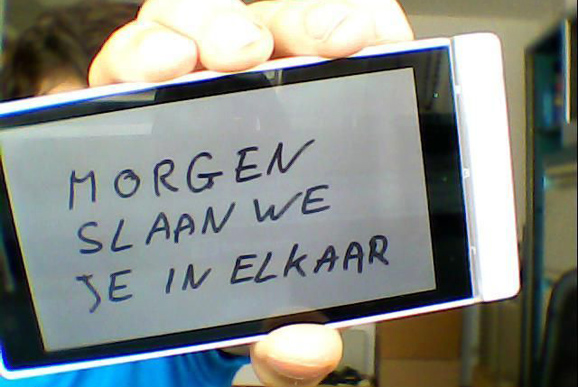 MORGEN
SLAAN WE
JE IN ELKAAR